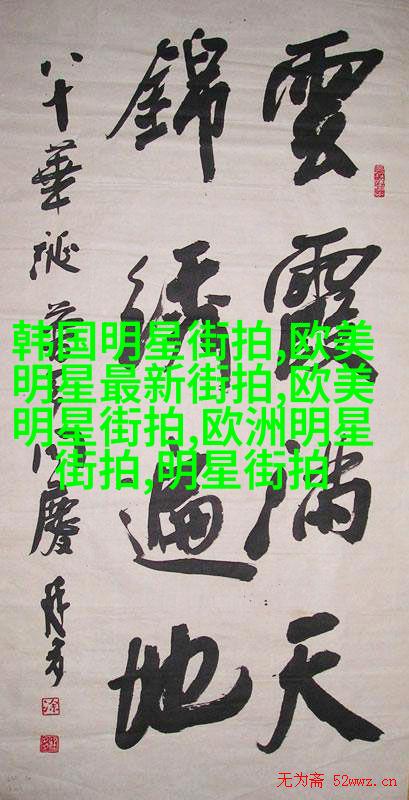 雲霞滿天
錦繡遍地
八十華誕 同慶
韩国明星街拍,欧美
明星最新街拍,欧美
明星街拍,欧洲明星
街拍,明星街拍
无为斋 52wwz.cn